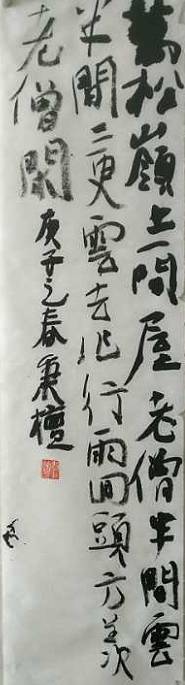 萬松嶺上一間屋老僧半間雲
半間三更雲去作行雨回頭方羨
老僧閑
庚子之春秉檀